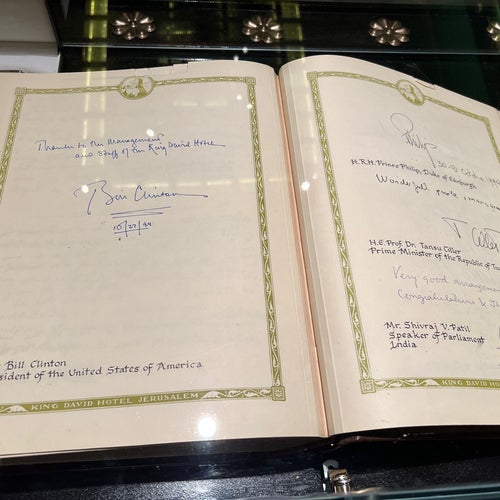 Thanks to the Management
and staff of the King David Hotel
Bill Clinton
10/27/94
Bill Clinton
sident of the United States of America
KING DAVID HOTEL JERUSALEM
Philip
H.R.H. Prince Philip, Duke of Edinburgh
H.E. Prof. Dr. Tansu Ciller
Prime Minister of the Republic of
Very good
Congratulations &
Mr. Shivraj V. Patil
Speaker of Parliament
India
KING DAVID